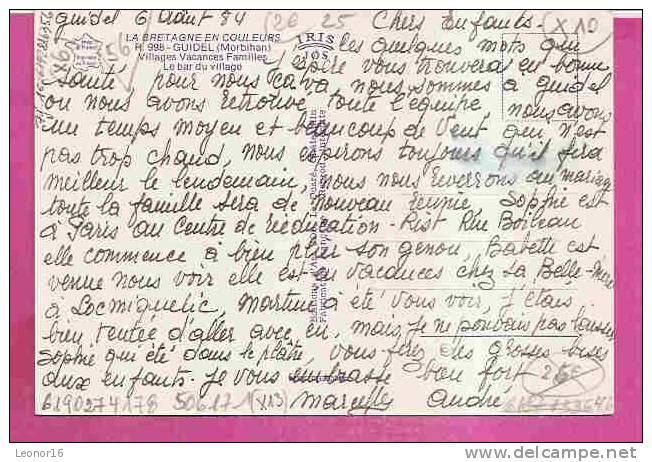 guidel 6 Août 84 (26 25 Chers Enfants - X10
LA BRETAGNE EN COULEURS
H. 998 - GUIDEL (Morbihan)
Villages Vacances Familles
Le bar du village
IRIS
JOS
ces quelques mots que
j'espère vous trouvera en bonne
santé, pour nous ça va, nous sommes à guidel
ou nous avons retrouvé toute l'équipe, nous avons
un temps moyen et beaucoup de vent qui n'est
pas trop chaud, nous espirons toujours qu'il fera
meilleur le lendemain, nous nous reverrons au mariage
toute la famille sera de nouveau réunie Sophie est
à Paris au centre de rééducation - Rist Rue Boileau
elle commence à bien plier son genou, Babette est
venue nous voir elle est en vacances chez sa Belle-Mère
à Locmiquelic, Martine à été vous voir, j'étais
bien tentée d'aller avec eu, mais je ne pouvais pas laisser
Sophie qui été dans le plâtre, vous ferez des grosses bises
aux enfants. je vous embrasse bien fort 26e
6190274178 50617-1 (X13) Marcelle André
Leonor16
www.delcampe.net